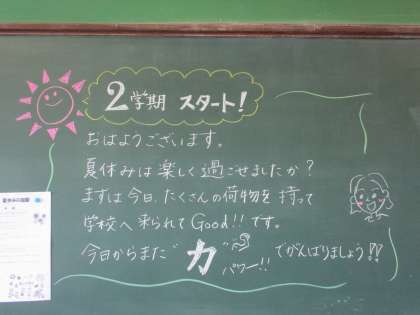 2学期 スタート!
おはようございます。
夏休みは楽しく過ごせましたか?
まずは今日、たくさんの荷物を持って
学校へ来られてGood!!です。
今日からまた“力パワー!!”でがんばりましょう!!